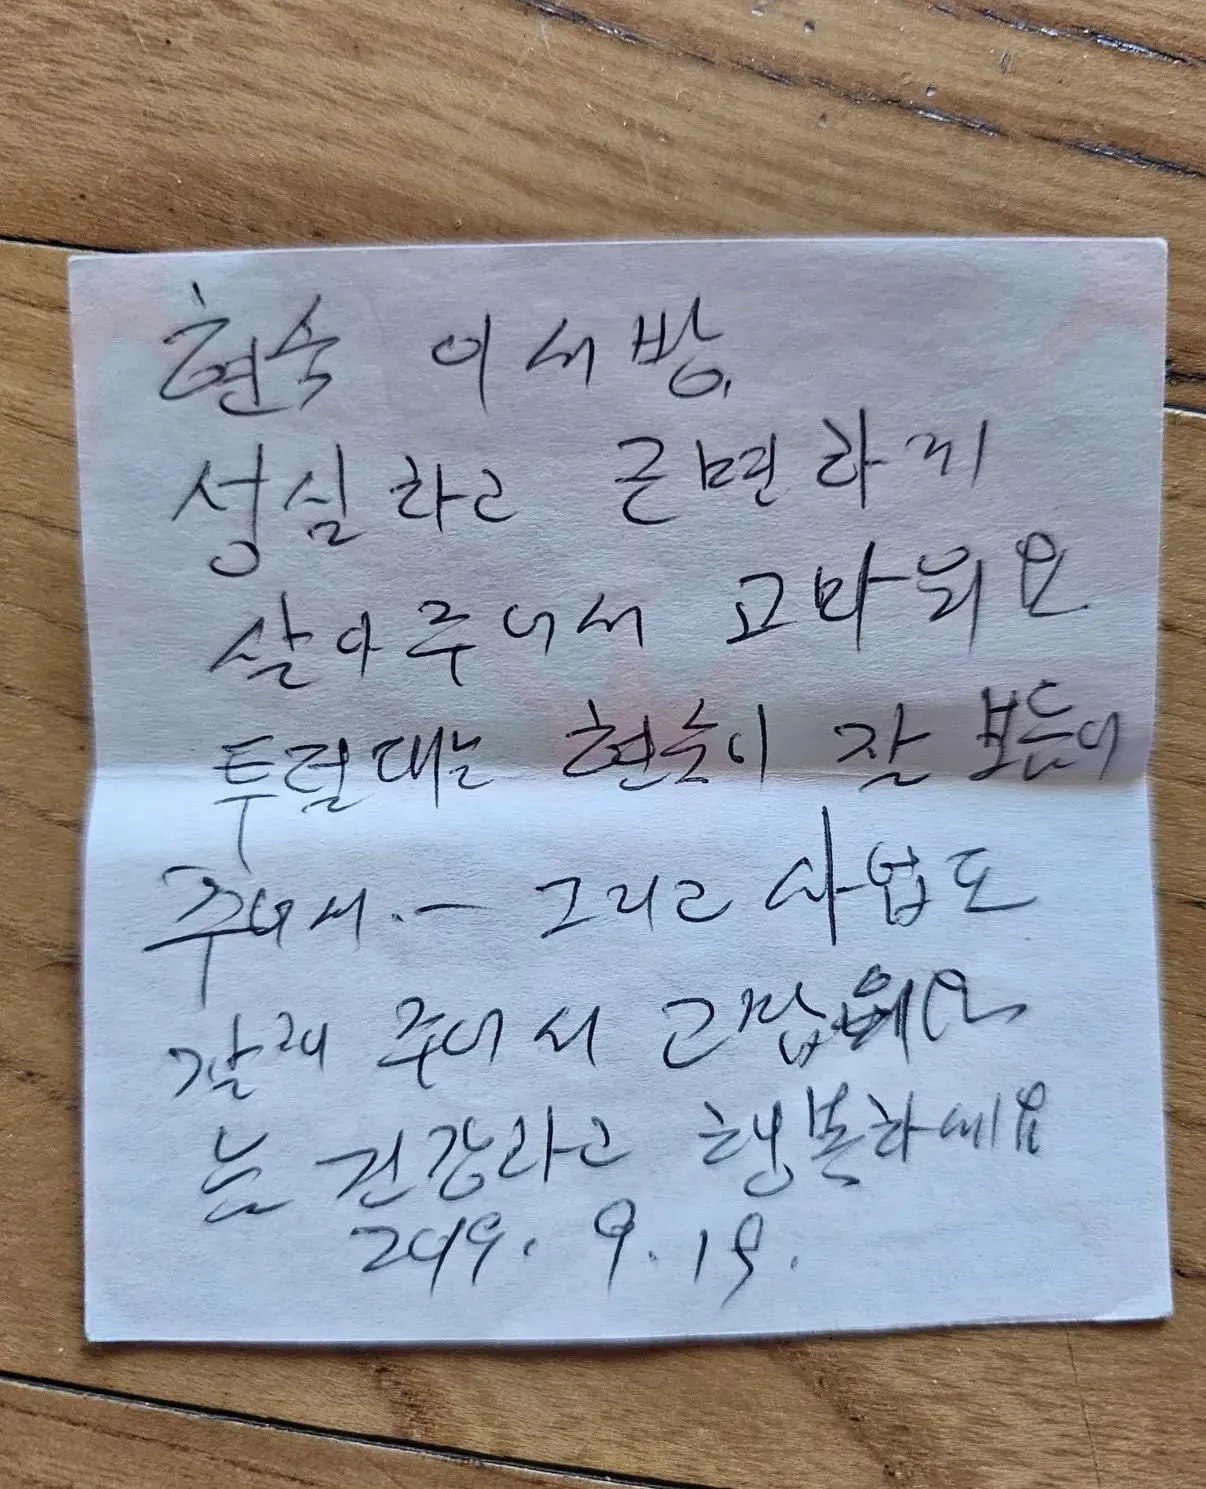 현숙 이서방
성실하고 근면하게
살아주어서 고마워요
투덜대는 현숙이 잘 보듬어
주어서.— 그리고 사업도
잘해 주어서 고맙워요
늘 건강하고 행복하세요
2019. 9. 19.